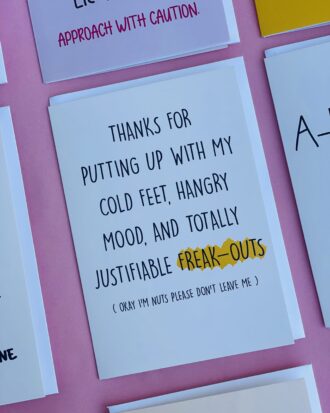 APPROACH WITH CAUTION.
THANKS FOR
PUTTING UP WITH MY
COLD FEET, HANGRY
MOOD, AND TOTALLY
JUSTIFIABLE FREAK-OUTS
( OKAY I'M NUTS PLEASE DON'T LEAVE ME )